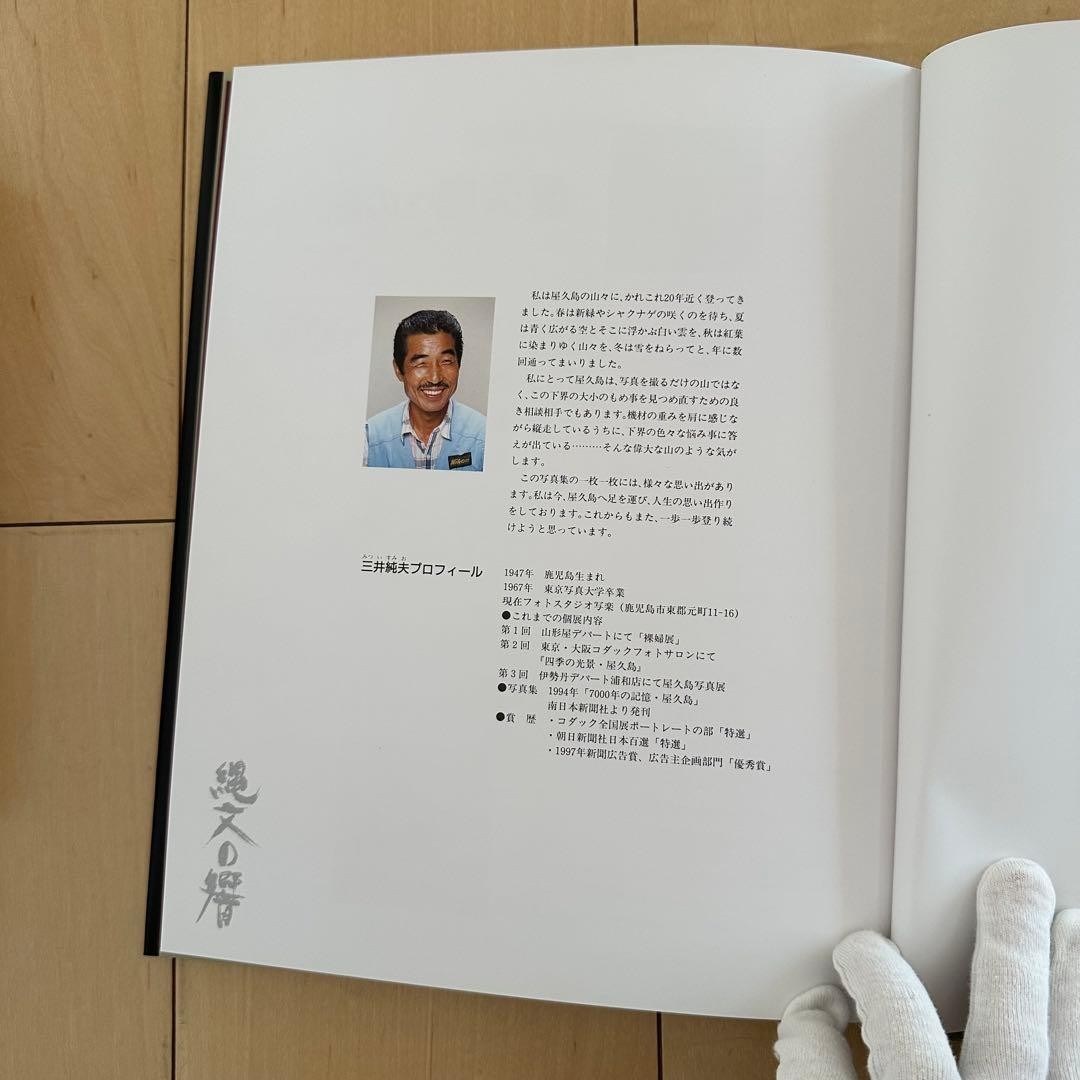 私は屋久島の山々に、かれこれ20年近く登ってき
ました。春は新緑やシャクナゲの咲くのを待ち、夏
は青く広がる空とそこに浮かぶ白い雲を、秋は紅葉
に染まりゆく山々を、冬は雪をねらってと、年に数
回通ってまいりました。
私にとって屋久島は、写真を撮るだけの山ではな
く、この下界の大小のもめ事を見つめ直すための良
き相談相手でもあります。機材の重みを肩に感じな
がら縦走しているうちに、下界の色々な悩み事に答
えが出ている………そんな偉大な山のような気が
します。
この写真集の一枚一枚には、様々な思い出があり
ます。私は今、屋久島へ足を運び、人生の思い出作り
をしております。これからもまた、一歩一歩登り続
けようと思っています。
Nikon
みつ い すみ お
三井純夫プロフィール
1947年 鹿児島生まれ
1967年 東京写真大学卒業
現在フォトスタジオ写楽（鹿児島市東郡元町11-16）
●これまでの個展内容
第1回 山形屋デパートにて「裸婦展」
第2回 東京・大阪コダックフォトサロンにて
『四季の光景・屋久島』
第3回 伊勢丹デパート浦和店にて屋久島写真展
●写真集 1994年「7000年の記憶・屋久島」
南日本新聞社より発刊
●賞 歴 ・コダック全国展ポートレートの部「特選」
・朝日新聞社日本百選「特選」
・1997年新聞広告賞、広告主企画部門「優秀賞」
縄文の響